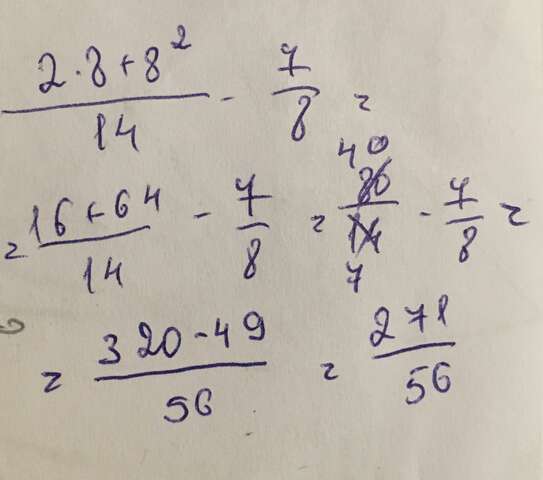 (2·8+8²)/14 - 7/8 =
= (16+64)/14 - 7/8 = 80/14 40/7 - 7/8 =
= (320-49)/56 = 271/56